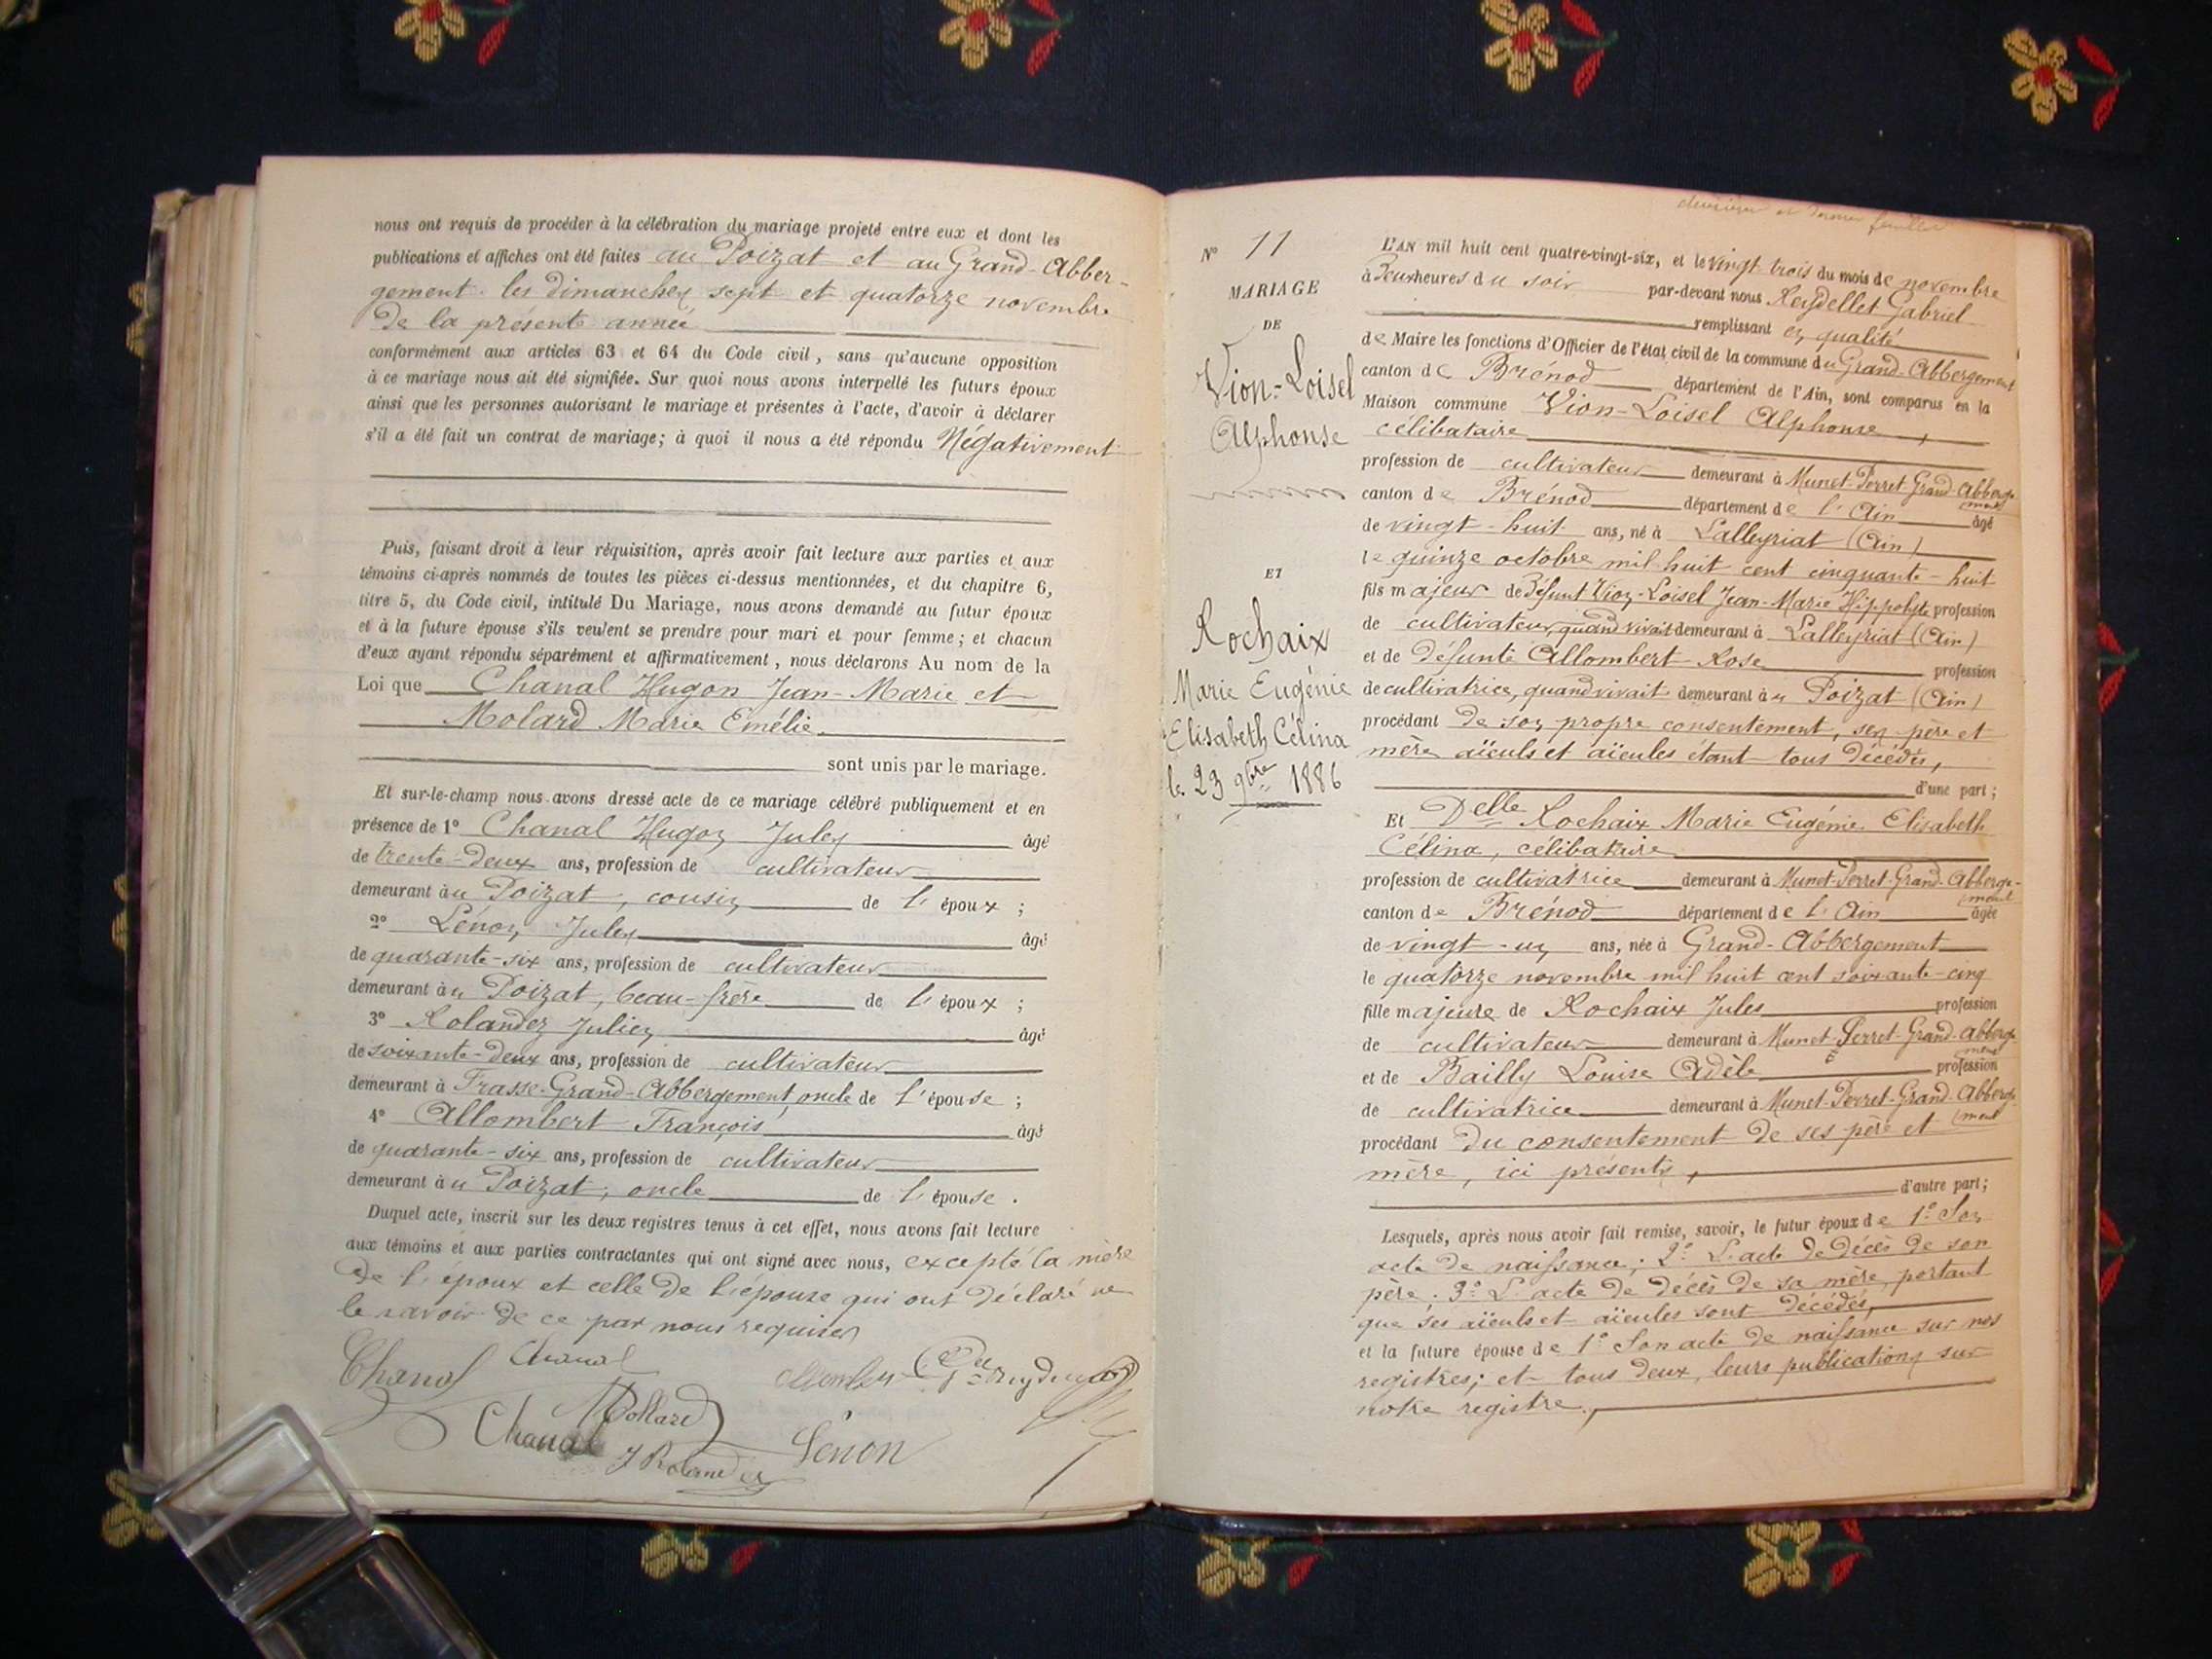 nous ont requis de procéder à la célébration du mariage projeté entre eux et dont les
publications et affiches ont été faites au Poizat et au Grand-Abber-
gement les dimanches sept et quatorze novembre
de la présente année
conformément aux articles 63 et 64 du Code civil, sans qu'aucune opposition
à ce mariage nous ait été signifiée. Sur quoi nous avons interpellé les futurs époux
ainsi que les personnes autorisant le mariage et présentes à l'acte, d'avoir à déclarer
s'il a été fait un contrat de mariage; à quoi il nous a été répondu Négativement
Puis, faisant droit à leur réquisition, après avoir fait lecture aux parties et aux
témoins ci-après nommés de toutes les pièces ci-dessus mentionnées, et du chapitre 6,
titre 5, du Code civil, intitulé Du Mariage, nous avons demandé au futur époux
et à la future épouse s'ils veulent se prendre pour mari et pour femme; et chacun
d'eux ayant répondu séparément et affirmativement, nous déclarons Au nom de la
Loi que Chanal Hugon Jean-Marie et
Molard Marie Emélie.
sont unis par le mariage.
Et sur-le-champ nous avons dressé acte de ce mariage célébré publiquement et en
présence de 1° Chanal Hugon Jules âgé
de trente-deux ans, profession de cultivateur
demeurant au Poizat, cousin de l'époux;
2° Lénon Jules âgé
de quarante-six ans, profession de cultivateur
demeurant au Poizat, beau-frère de l'époux;
3° Rolandez Julien âgé
de soixante-deux ans, profession de cultivateur
demeurant à Frasse-Grand-Abbergement, oncle de l'épouse;
4° Allombert François âgé
de quarante-six ans, profession de cultivateur
demeurant au Poizat, oncle de l'épouse.
Duquel acte, inscrit sur les deux registres tenus à cet effet, nous avons fait lecture
aux témoins et aux parties contractantes qui ont signé avec nous, excepté la mère
de l'époux et celle de l'épouse qui ont déclaré ne
le savoir de ce par nous requises
Chanal Chanal
Mollard
Chanal Lénon
J Rolandez
N° 11
MARIAGE
DE
Vion-Loisel
Alphonse
ET
Rochaix
Marie Eugénie
Elisabeth Célina
le 23 9bre 1886
L'AN mil huit cent quatre-vingt-six, et le vingt trois du mois de novembre
à Deux heures du soir par-devant nous Reydellet Gabriel
remplissant en qualité
de Maire les fonctions d'Officier de l'état civil de la commune du Grand-Abbergement
canton de Brénod département de l'Ain, sont comparus en la
Maison commune Vion-Loisel Alphonse,
célibataire
profession de cultivateur demeurant à Munet-Perret-Grand-Abberge
ment
canton de Brénod département de l'Ain âgé
de vingt-huit ans, né à Lalleyriat (Ain)
le quinze octobre mil huit cent cinquante-huit
fils majeur de Défunt Vion-Loisel Jean-Marie Hippolyte profession
de cultivateur, quand vivait demeurant à Lalleyriat (Ain)
et de Défunte Allombert Rose profession
de cultivatrice, quand vivait demeurant au Poizat (Ain)
procédant de son propre consentement, ses père et
mère aïeuls et aïeules étant tous décédés,
d'une part;
Et Delle Rochaix Marie Eugénie Elisabeth
Célina, célibataire
profession de cultivatrice demeurant à Munet-Perret-Grand-Abberge-
ment
canton de Brénod département de l'Ain âgée
de vingt-un ans, née à Grand-Abbergement
le quatorze novembre mil huit cent soixante-cinq
fille majeure de Rochaix Jules profession
de cultivateur demeurant à Munet-Perret-Grand-Abberge
ment
et de Bailly Louise Adèle profession
de cultivatrice demeurant à Munet-Perret-Grand-Abberge
ment
procédant du consentement de ses père et
mère, ici présents,
d'autre part;
Lesquels, après nous avoir fait remise, savoir, le futur époux de 1° Son
acte de naissance; 2° L'acte de décès de son
père; 3° L'acte de décès de sa mère, portant
que ses aïeuls et aïeules sont décédés,
et la future épouse de 1° Son acte de naissance sur nos
registres; et tous deux, leurs publications sur
notre registre.